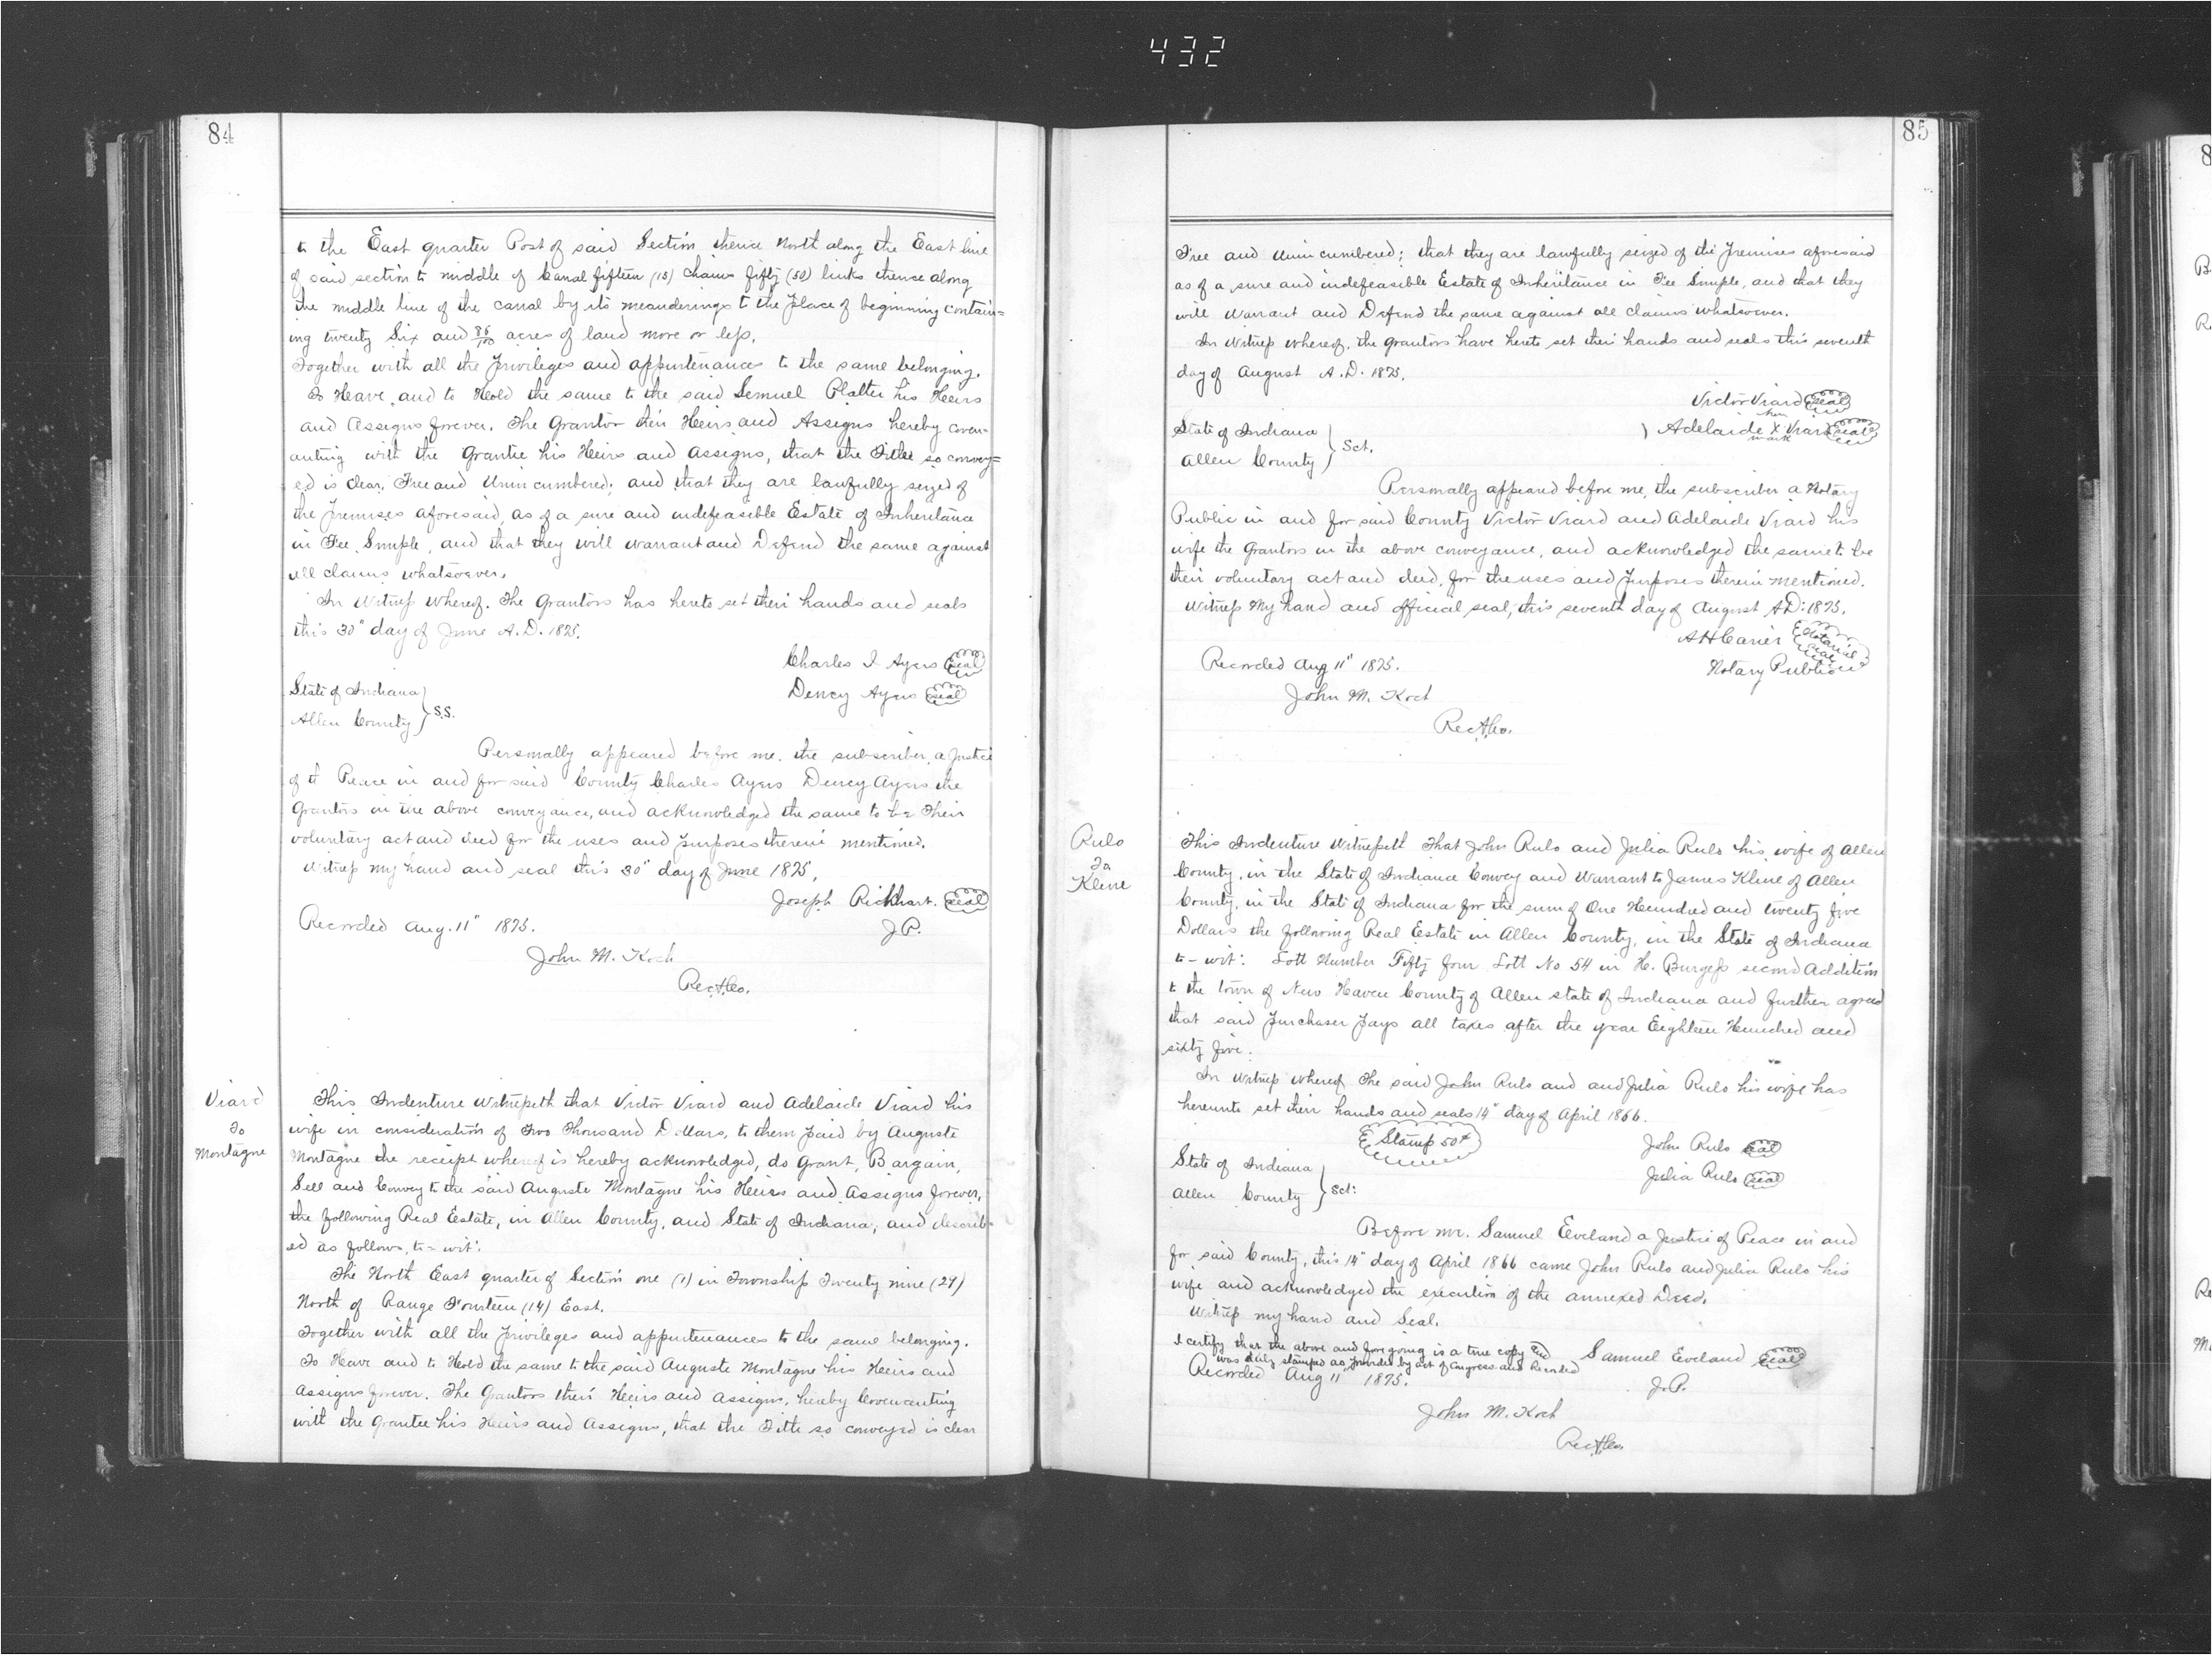 432
84
to the East quarter Post of said Section thence North along the East line
of said section to middle of Canal fifteen (15) Chains fifty (50) links thence along
the middle line of the canal by its meanderings to the place of beginning contain=
ing twenty Six and 86/100 acres of land more or less.
Together with all the privileges and appurtenances to the same belonging.
To Have and to Hold the same to the said Semuel Platter his Heirs
and Assigns forever. The Grantor their Heirs and Assigns hereby coven-
anting with the Grantee his Heirs and assigns, that the Title so convey=
ed is Clear, Free and Unincumbered; and that they are lawfully seized of
the premises aforesaid, as of a sure and indefeasible Estate of Inheritance
in Fee Simple, and that they will warrant and Defend the same against
all claims whatsoever.
In Witness Whereof. The Grantors has hereto set their hands and seals
this 30" day of June A.D. 1875.
Charles I Ayers seal
Dency Ayers seal
State of Indiana
Allen County } S.S.
Personally appeared before me. the subscriber, a Justice
of t Peace in and for said County Charles Ayers Dency Ayers the
Grantors in the above conveyance, and acknowledged the same to be Their
voluntary act and deed for the uses and purposes therein mentioned.
Witness my hand and seal this 30" day of June 1875.
Joseph Rickhart. seal
J.P.
Recorded Aug. 11" 1875.
John M. Koch
Rec.A.Co.
Viard
To
Montagne
This Indenture Witnesseth that Victor Viard and Adelaide Viard his
wife in consideration of Two Thousand Dollars, to them paid by Auguste
Montagne the receipt whereof is hereby acknowledged, do Grant, Bargain,
Sell and Convey to the said Auguste Montagne his Heirs and Assigns forever,
the following Real Estate, in Allen County, and State of Indiana, and describ=
ed as follows, to-wit:
The North East quarter of Section one (1) in Township Twenty nine (29)
North of Range Fourteen (14) East.
Together with all the privileges and appurtenances to the same belonging.
To Have and to Hold the same to the said Auguste Montagne his Heirs and
Assigns forever. The Grantors their Heirs and Assigns, hereby Covenanting
with the Grantee his Heirs and Assigns, that the Title so conveyed is clear
85
Free and Unincumbered; that they are lawfully seized of the premises aforesaid
as of a sure and indefeasible Estate of Inheritance in Fee Simple, and that they
will Warrant and Defend the same against all claims whatsoever.
In Witness whereof, the Grantors have hereto set their hands and seals this seventh
day of August A.D. 1875.
Victor Viard seal
Adelaide her X mark Viard seal
State of Indiana
Allen County } Sct.
Personally appeared before me, the subscriber a Notary
Public in and for said County Victor Viard and Adelaide Viard his
wife the Grantors in the above conveyance, and acknowledged the same to be
their voluntary act and deed, for the uses and purposes therein mentioned.
Witness My hand and official seal, this seventh day of August A.D. 1875.
A H Carier Notarial seal
Notary Public
Recorded Aug 11" 1875.
John M. Koch
Rec.A.Co.
Rulo
To
Kline
This Indenture Witnesseth That John Rulo and Julia Rulo his wife of Allen
County, in the State of Indiana Convey and Warrant to James Kline of Allen
County, in the State of Indiana for the sum of One Hundred and twenty five
Dollars the following Real Estate in Allen County, in the State of Indiana
to-wit: Lott Number Fifty four Lott No 54 in H. Burgess second Addition
to the town of New Haven County of Allen state of Indiana and further agreed
that said purchaser pays all taxes after the year Eighteen Hundred and
sixty five.
In Witness whereof The said John Rulo and and Julia Rulo his wife has
hereunto set their hands and seals 14" day of April 1866.
Stamp 50¢
John Rulo seal
Julia Rulo seal
State of Indiana
Allen County } Sct:
Before me. Samuel Eveland a Justice of Peace in and
for said County, this 14" day of April 1866 came John Rulo and Julia Rulo his
wife and acknowledged the execution of the annexed Deed.
Witness my hand and Seal.
I certify that the above and foregoing is a true copy and
was duly stamped as provided by act of Congress and Recorded
Samuel Eveland seal
J.P.
Recorded Aug 11" 1875.
John M. Koch
Rec.A.Co.